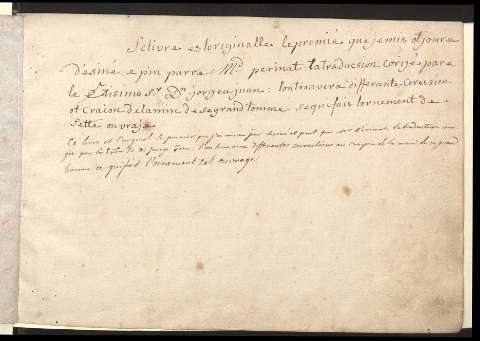 Se livre es loriginalle le premié que je mis ojours
désiné e pin parre Md perinat la traducsion corijé pare
le Sr Dn jorge juan: lontrouvera différante Corecsion
ot craion de la min de se grand omme se qui fais lornement de
sette ouvraje
Ce livre est l'original le premier que j'ai mis au jour dessiné et peint par
que par le Dn Jorge Juan. l'on trouvera différentes corrections au crayon de la main de ce grand
homme ce qui fait l'ornement de cet ouvrage.